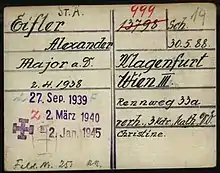 St. A.
Eifler
Alexander
Major a.D.
2.4.1938
27. Sep. 1939
2 2. März 1940
2. Jan. 1945
Feld. Nr. 251
999
13798 Sch.
19
30.5.88
Klagenfurt
Wien III.
Rennweg 33a
verh., 3 Kdr, Kath.
Christine.